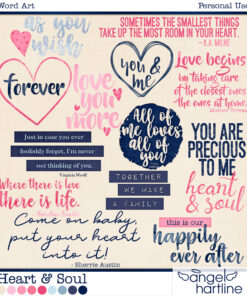 Word Art
Personal Use
as you
wish
SOMETIMES THE SMALLEST THINGS
TAKE UP THE MOST ROOM IN YOUR HEART.
- A.A. MILNE
forever
love
you
more
you &
me
Love begins
by taking care
of the closest ones -
the ones at home.
Mother Teresa
Just in case you ever
foolishly forget, I'm never
not thinking of you.
Virginia Woolf
All of
me loves
all of
you
YOU ARE
PRECIOUS
TO ME
heart &
soul
Where there is love
there is life.
TOGETHER
WE MAKE
A FAMILY
Come on baby,
put your heart
into it!
- Sherrie Austin
this is our
happily
ever after
Heart & Soul
by
angel
hartline